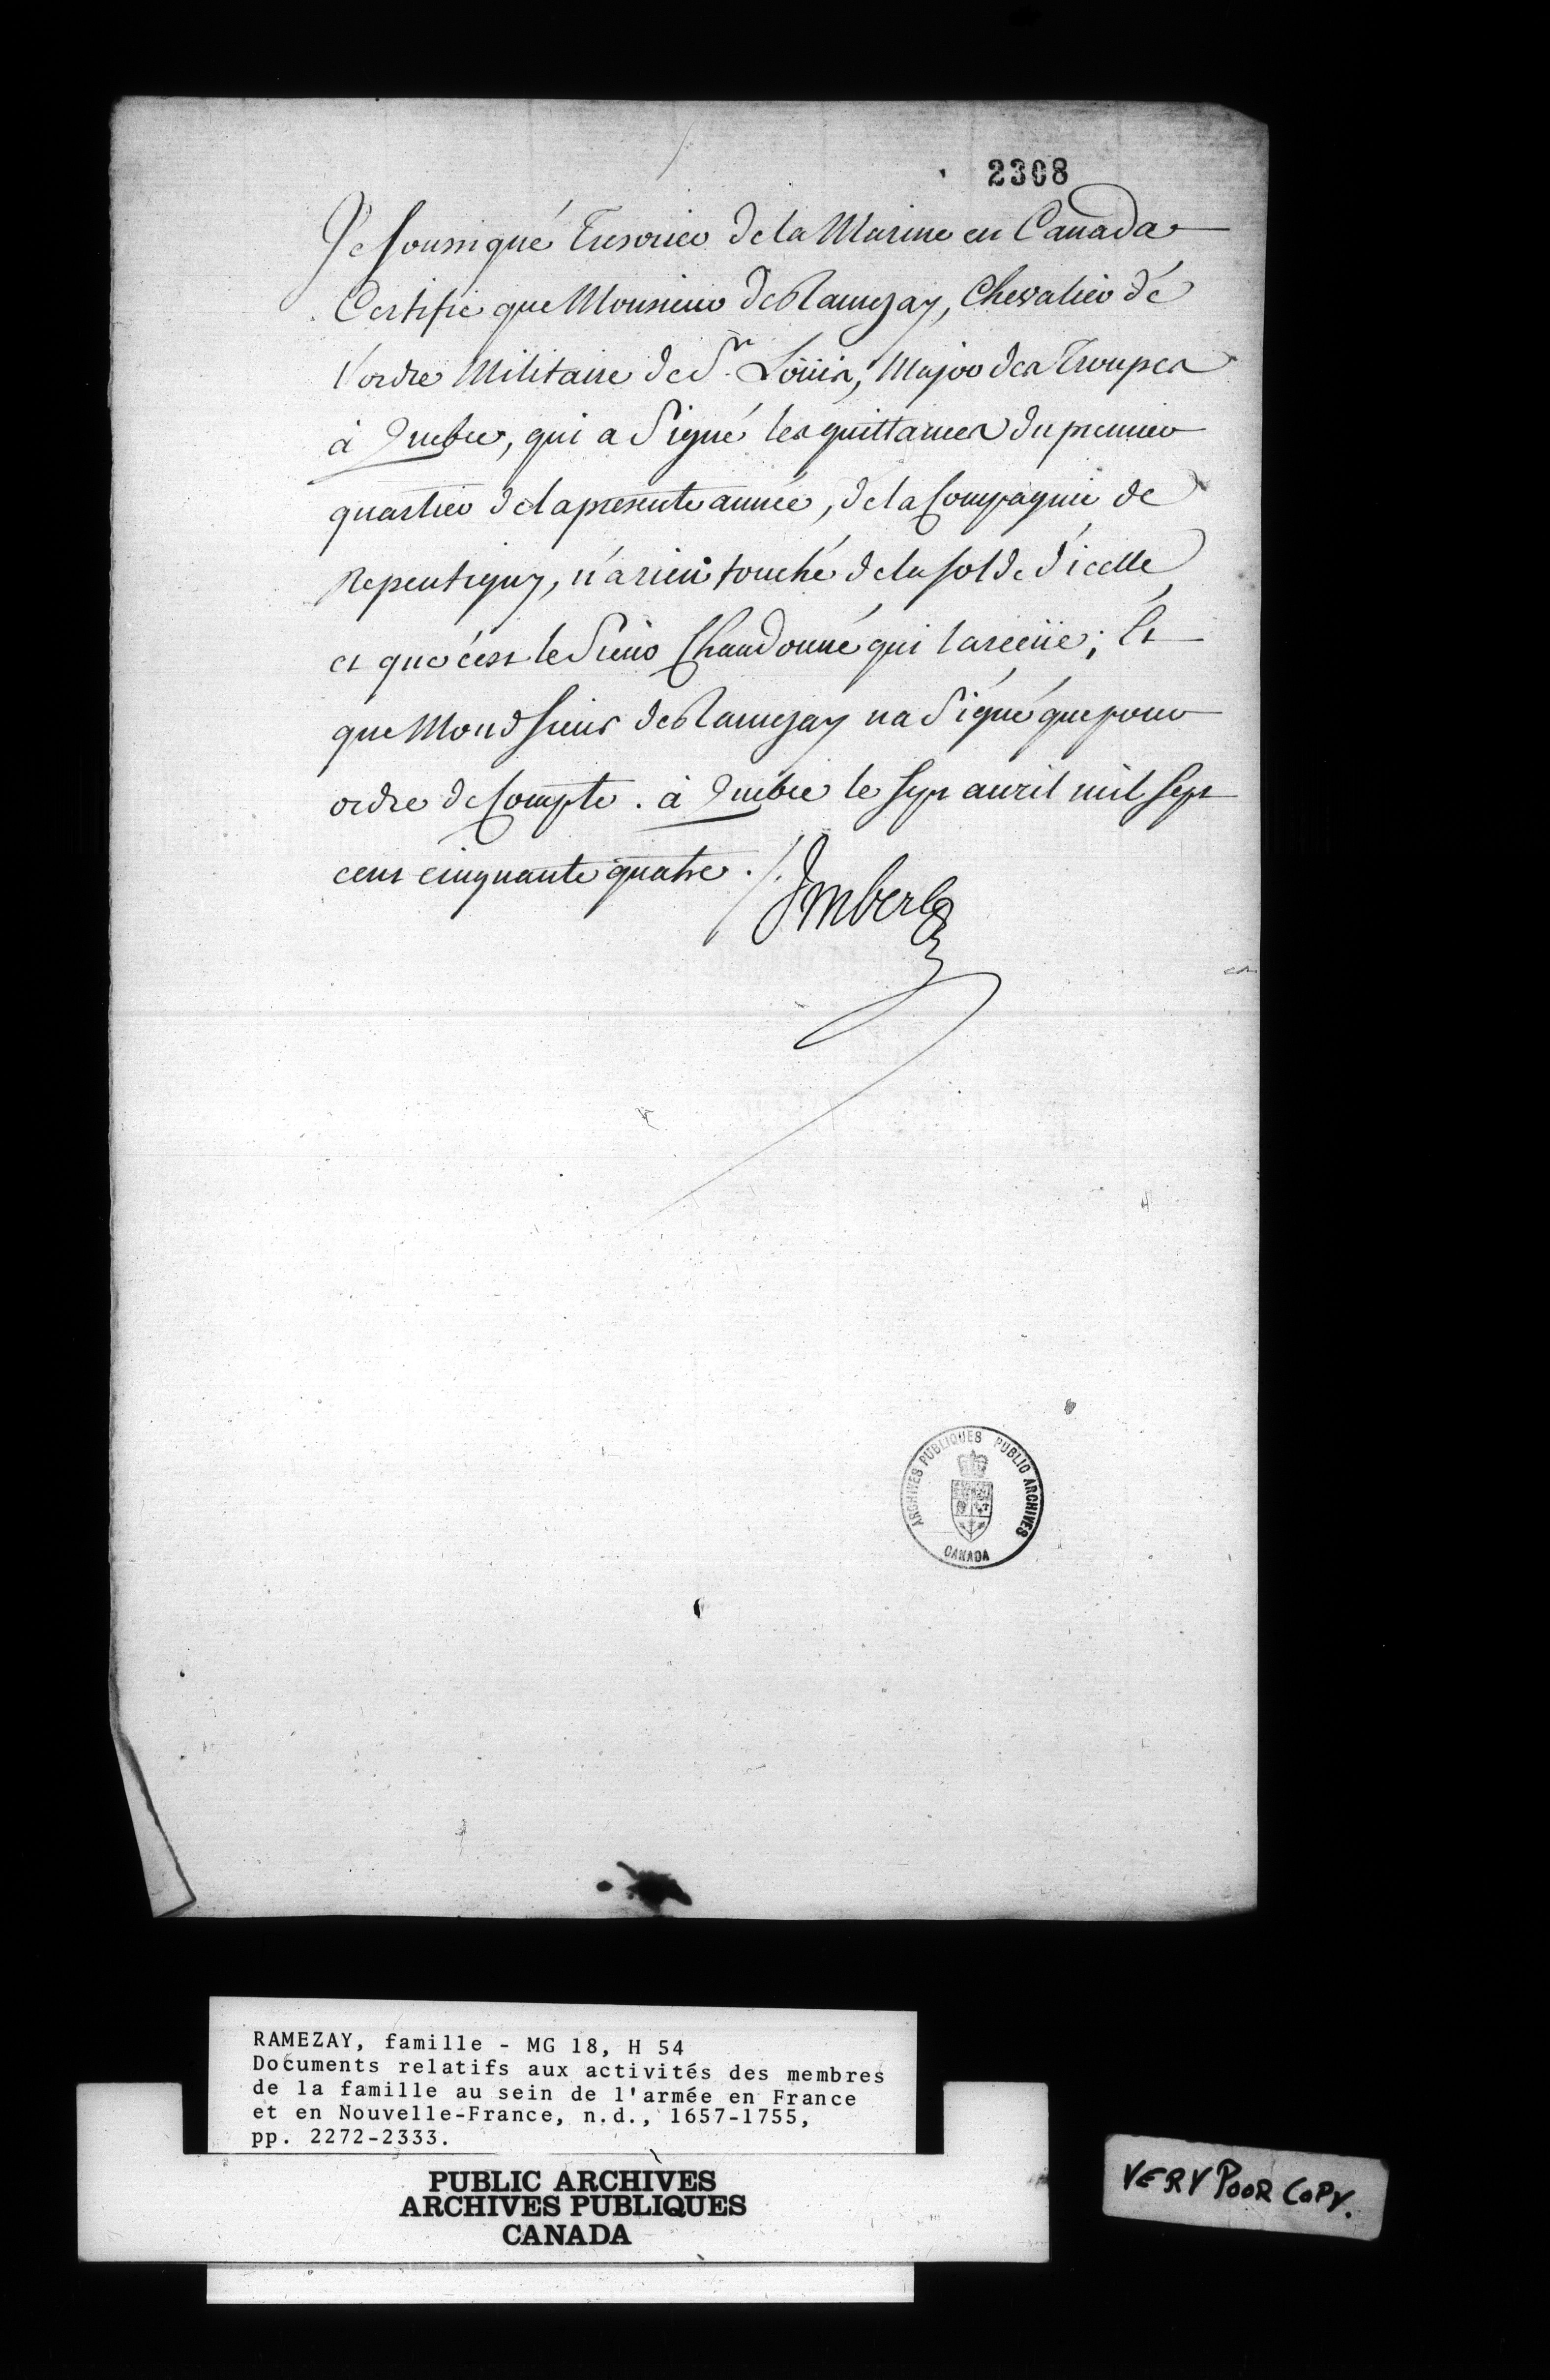 2308
Je soussigné Tresorier de la Marine en Canada
Certifie que Monsieur de Ramezay, Chevalier dé
l'ordre Militaire de St. Loüis, Major des Troupes
à Quebec, qui a signé les quittances du premier
quartier de la presente année, de la Compagnie de
Repentigny, n'a rien touché de la solde d'icelle
et que c'est le Sieur Chaudonné qui l'a reçüe; Et
que Mond Sieur de Ramezay n'a signé que pour
ordre de Compte. à Quebec le sept avril mil sept
cent cinquante quatre ./.
Imbert
ARCHIVES PUBLIQUES PUBLIC ARCHIVES
CANADA
RAMEZAY, famille - MG 18, H 54
Documents relatifs aux activités des membres
de la famille au sein de l'armée en France
et en Nouvelle-France, n.d., 1657-1755,
pp. 2272-2333.
PUBLIC ARCHIVES
ARCHIVES PUBLIQUES
CANADA
VERY POOR COPY.